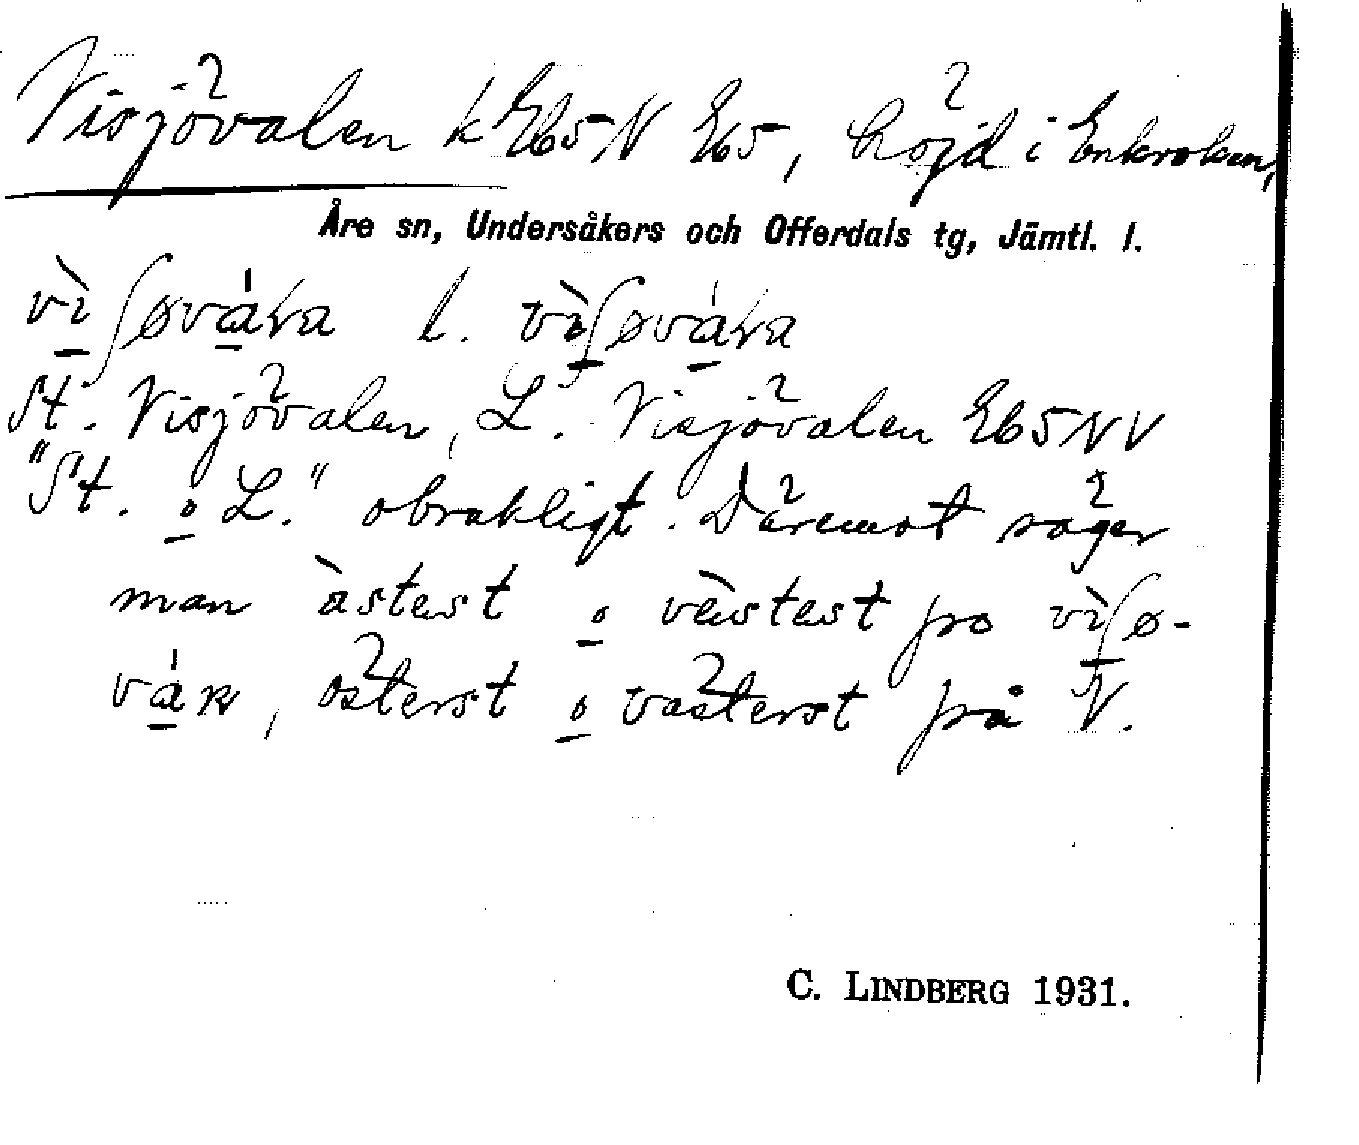 Visjövalen k Eb5N Eb5, höjd i Enkroken,
Åre sn, Undersåkers och Offerdals tg, Jämtl. l.
vìʃøvàɽa l. vìʃøvàɽa
St. Visjövalen, L. Visjövalen Eb5NV
"St. o L." obrukligt. Däremot säger
man àstest o vèstest po vìʃø-
vàɽn, österst o västerst på V.
C. LINDBERG 1931.